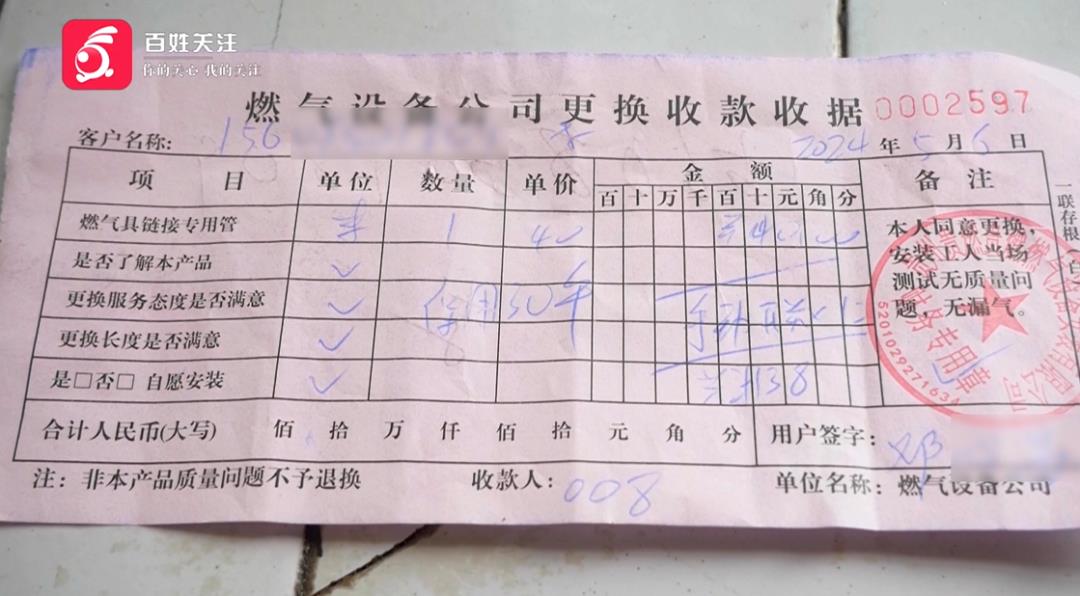 百姓关注
你的关心 我的关注
燃气设备公司更换收款收据 0002597
客户名称: 156 2024 年 5 月 6 日
项 目 单位 数量 单价 金 额 备 注
百 十 万 千 百 十 元 角 分
燃气具链接专用管 1 本人同意更换,
是否了解本产品 ✓ 安装工人当场
更换服务态度是否满意 ✓ 使用30年 测试无质量问
更换长度是否满意 ✓ 题,无漏气。
是□否□ 自愿安装 ✓ 138
合计人民币(大写) 佰 拾 万 仟 佰 拾 元 角 分 用户签字: 邓
注: 非本产品质量问题不予退换 收款人: 008 单位名称: 燃气设备公司
一联存根
财务专用章
5201029271634